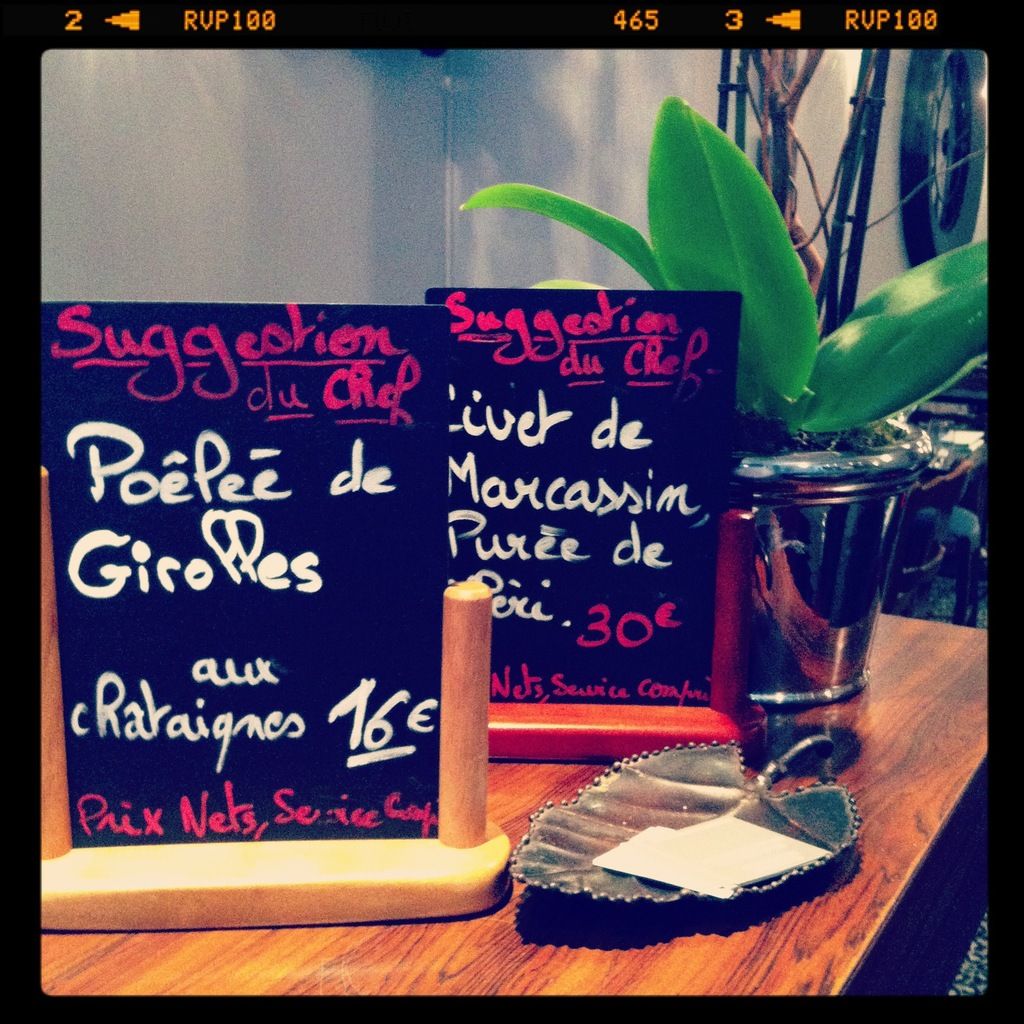 2 RVP100 465 3 RVP100
Suggestion
du Chef
Poêlée de
Girolles
aux
chataignes 16€
Prix Nets, Service Comp
Suggestion
du Chef
de
Marcassin,
Purée de
30€
Nets, Service compri